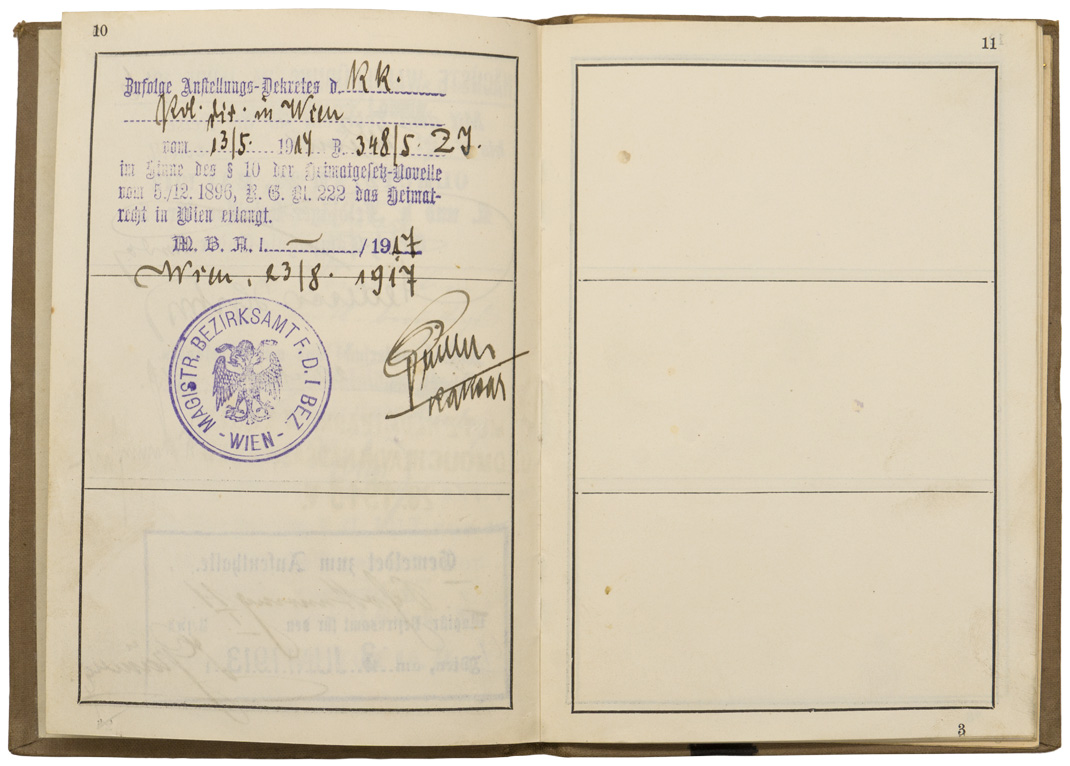 10
Zufolge Anstellungs-Dekretes d. KK.
Pol. dir. in Wien
vom 13/5. 1917 Z. 348/5. 27.
im Sinne des § 10 der Heimatgesetz-Novelle
vom 5./12. 1896, R. G. Bl. 222 das Heimat-
recht in Wien erlangt.
M. B. A. I. — / 1917
Wien, 23/8. 1917
MAGISTR. BEZIRKSAMT F. D. I BEZ.
- WIEN -
Gemeldet zum Aufenthalte.
11
3